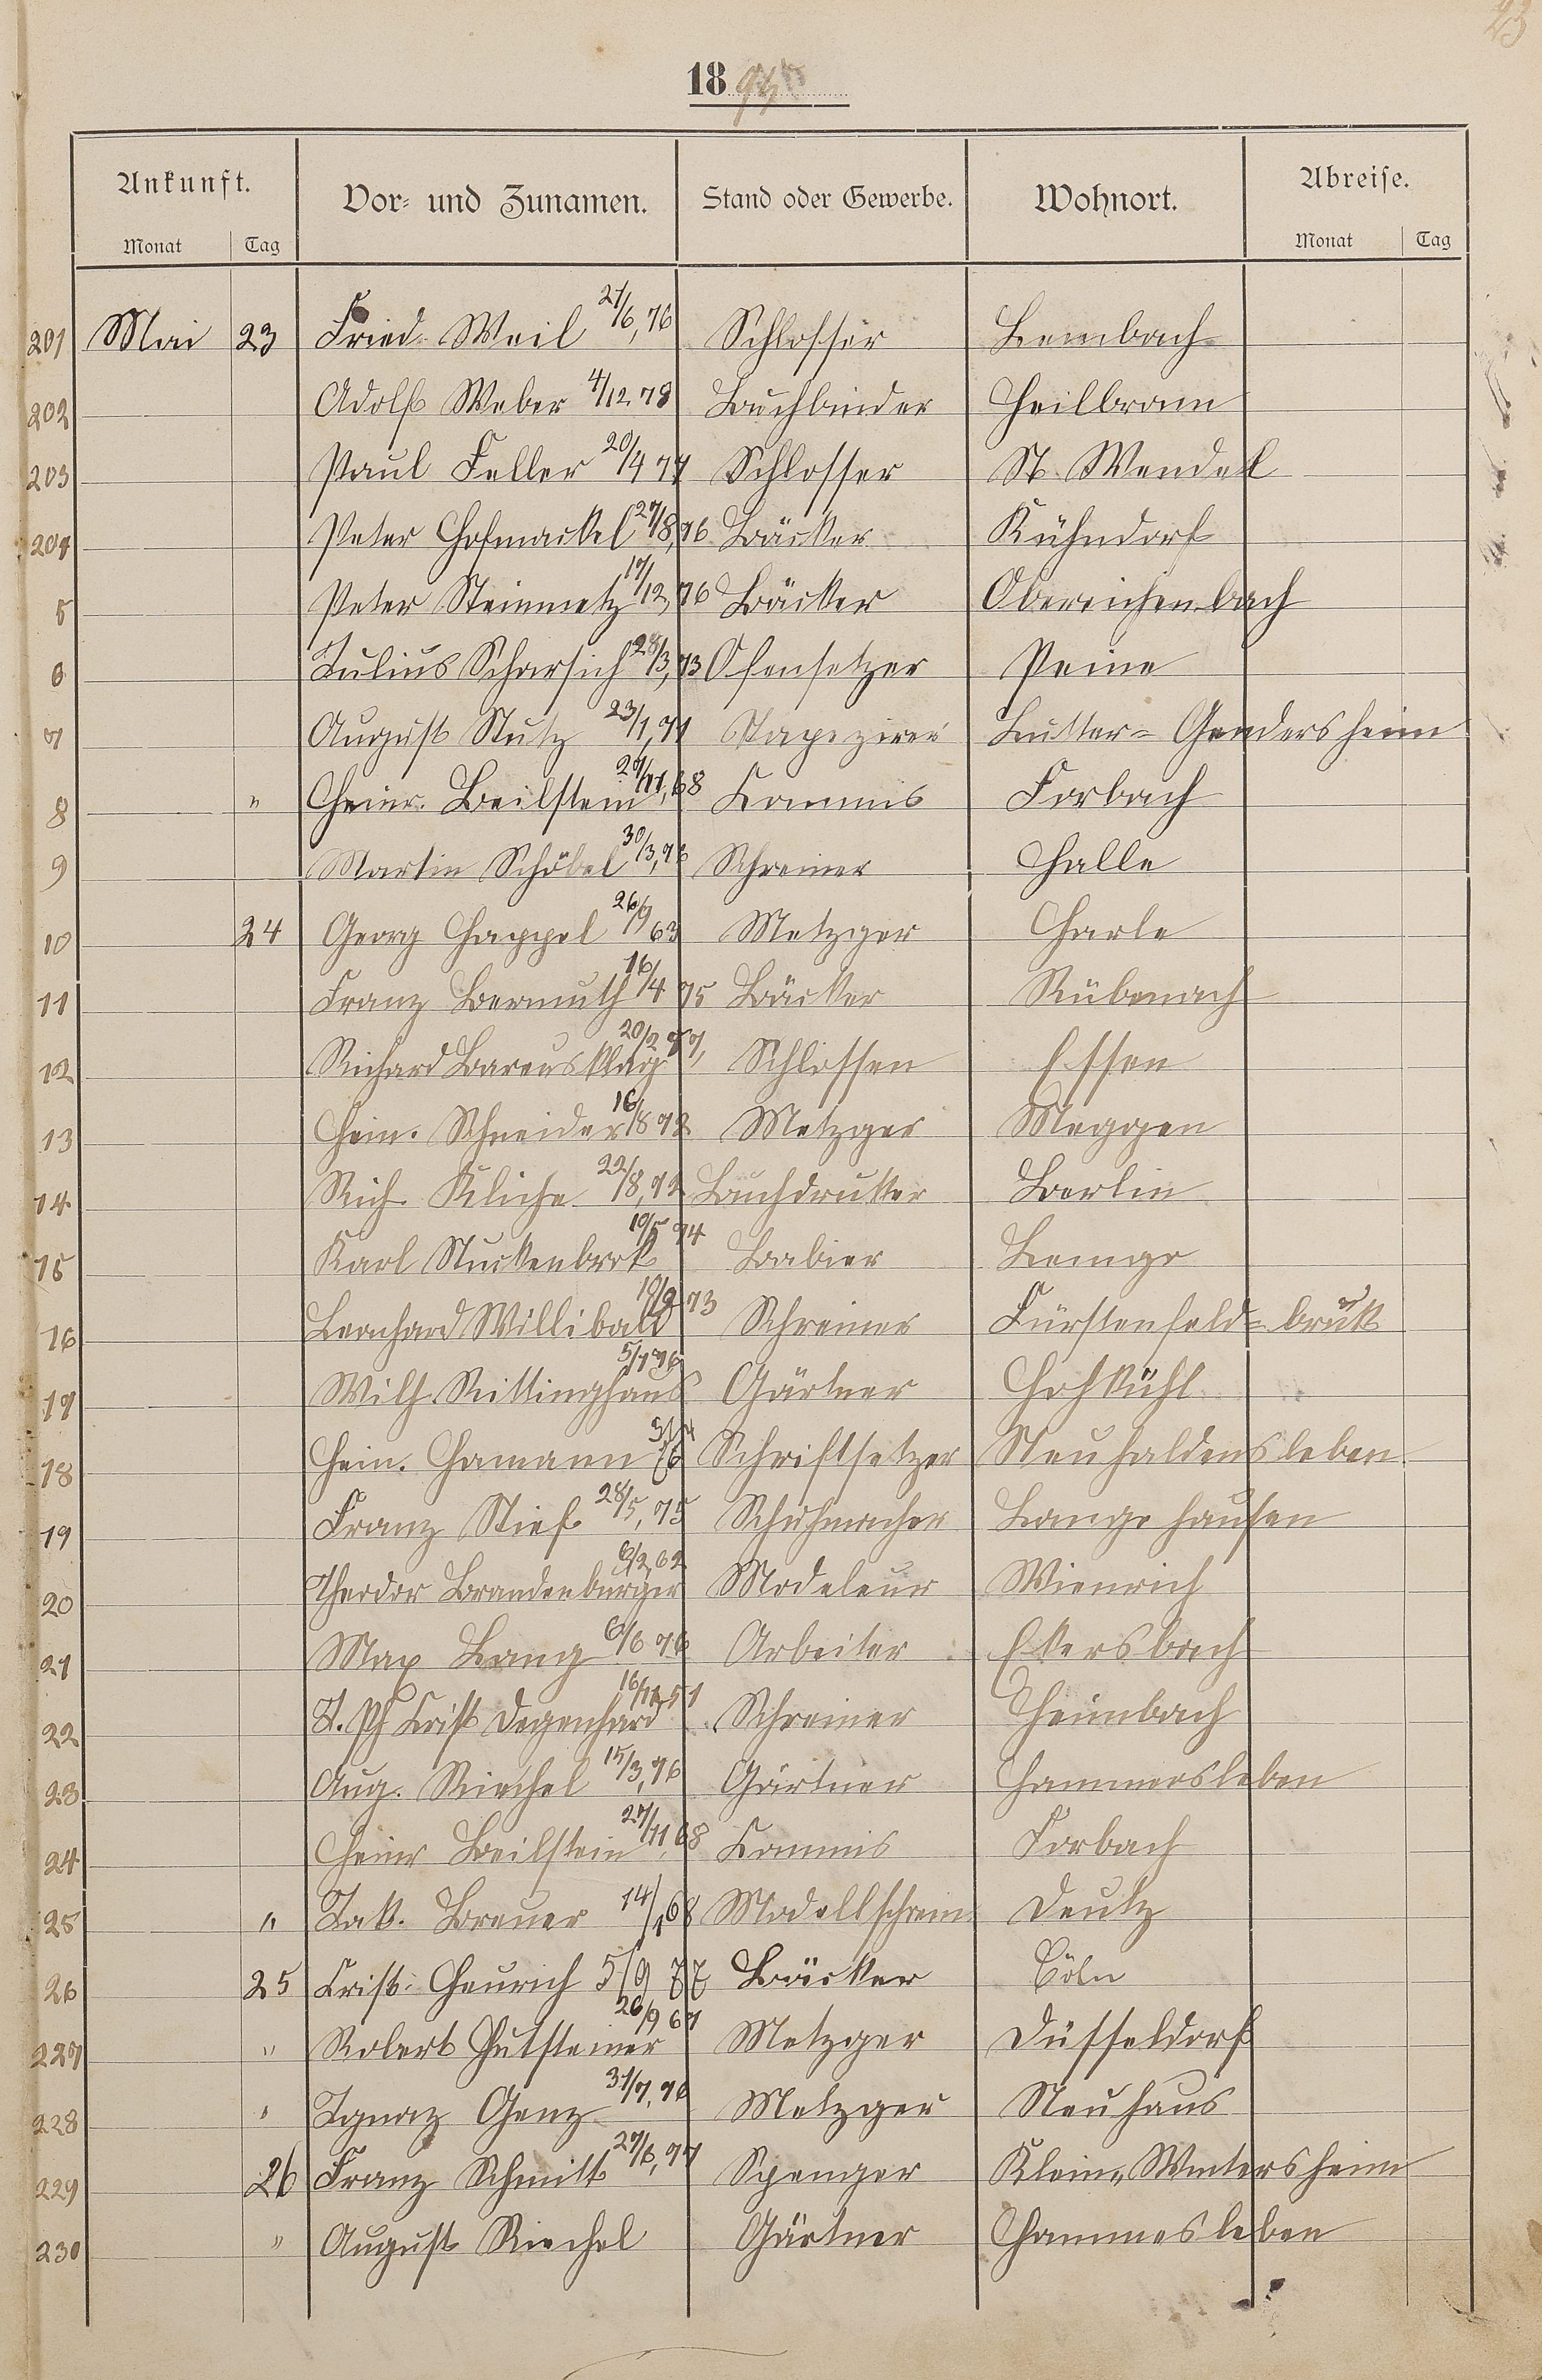 23
1895
Ankunft. Vor- und Zunamen. Stand oder Gewerbe. Wohnort. Abreise.
Monat Tag Monat Tag
201 Mai 23 Fried. Weil 27/6,76 Schlosser Lembach
202 Adolf Weber 4/12 78 Buchbinder Heilbronn
203 Paul Feller 20/4 77 Schlosser St. Wendel
204 Peter Hofmackel 27/8,76 Bäcker Kühndorf
5 Peter Steinmetz 17/12,76 Bäcker Obereichenbach
6 Julius Scharsich 28/3,73 Ofensetzer Peine
7 August Stutz 23/1,71 Tapezirer Lutter-Gandersheim
8 " Heinr. Beilstein 27/11,68 Commis Forbach
9 Martin Schöbel 30/3,76 Schreiner Halle
10 24 Georg Happel 26/9 63 Metzger Harle
11 Franz Bermuth 16/4 75 Bäcker Rübenach
12 Richard 20/2 77, Schlosser Essen
13 Hein. Schneider 16/8 72 Metzger Meggen
14 Rich. Kliche 22/8,72 Buchdruker Berlin
15 Karl Stuckenbrok 10/5 74 Babier Lemgo
16 Leonhard Willibald 10/9 73 Schreiner Fürstenfeld-bruk
17 Wilh. Rittinghaus 5/1 76 Gärtner Hohkühl
18 Hein. Hamann Schriftsetzer Neuhaldensleben
19 Franz Stief 28/5,75 Schuhmacher Langehausen
20 Theodor Brandenburger 6/2,62 Modeleur Wienrich
21 Max Lang 6/6 76 Arbeiter Ekersbach
22 J. Ph Crist Degenhard 16/11,51 Schreiner Heimbach
23 Aug. Riechel 15/3,76 Gärtner Hammersleben
24 Heinr Beilstein 27/11,68 Commis Forbach
25 " Jak. Breuer 14/1 68 Modellschrein Deutz
26 25 Crist. Heurich 5/9 77 Bäcker Cöln
227 " Robert Hutsteiner 26/9 67 Metzger Düsseldorf
228 " Ignaz Genz 31/7,76 Metzger Neuhaus
229 26 Franz Schmitt 27/6,77 Spenger Klein-Wintersheim
230 " August Riechel Gärtner Hammesleben